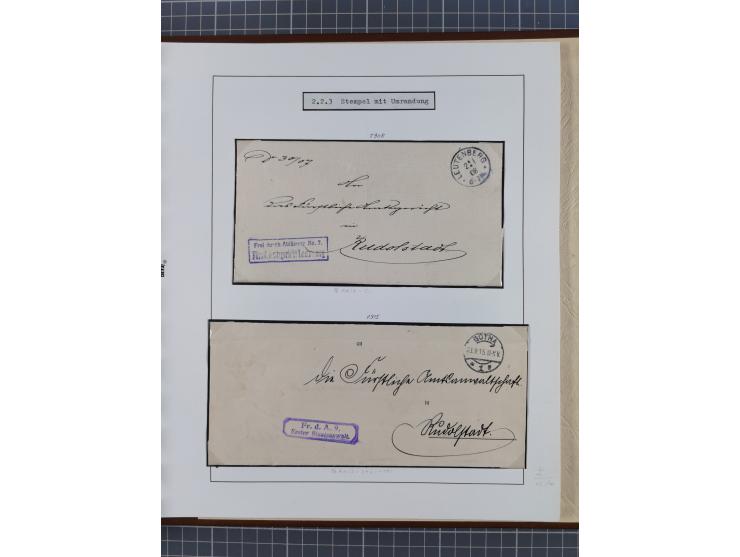 2.2.3 Stempel mit Umrandung
1908
Dr 30/07
LEUTENBERG
An
das Fürstliche Amtsgericht
in
Rudolstadt
Frei durch Ablösung Nr. 7.
1915
GOTHA
An
die Fürstliche Amtsanwaltschaft.
in
Rudolstadt.
Fr. d. A. 9.
Erster Staatsanwalt.